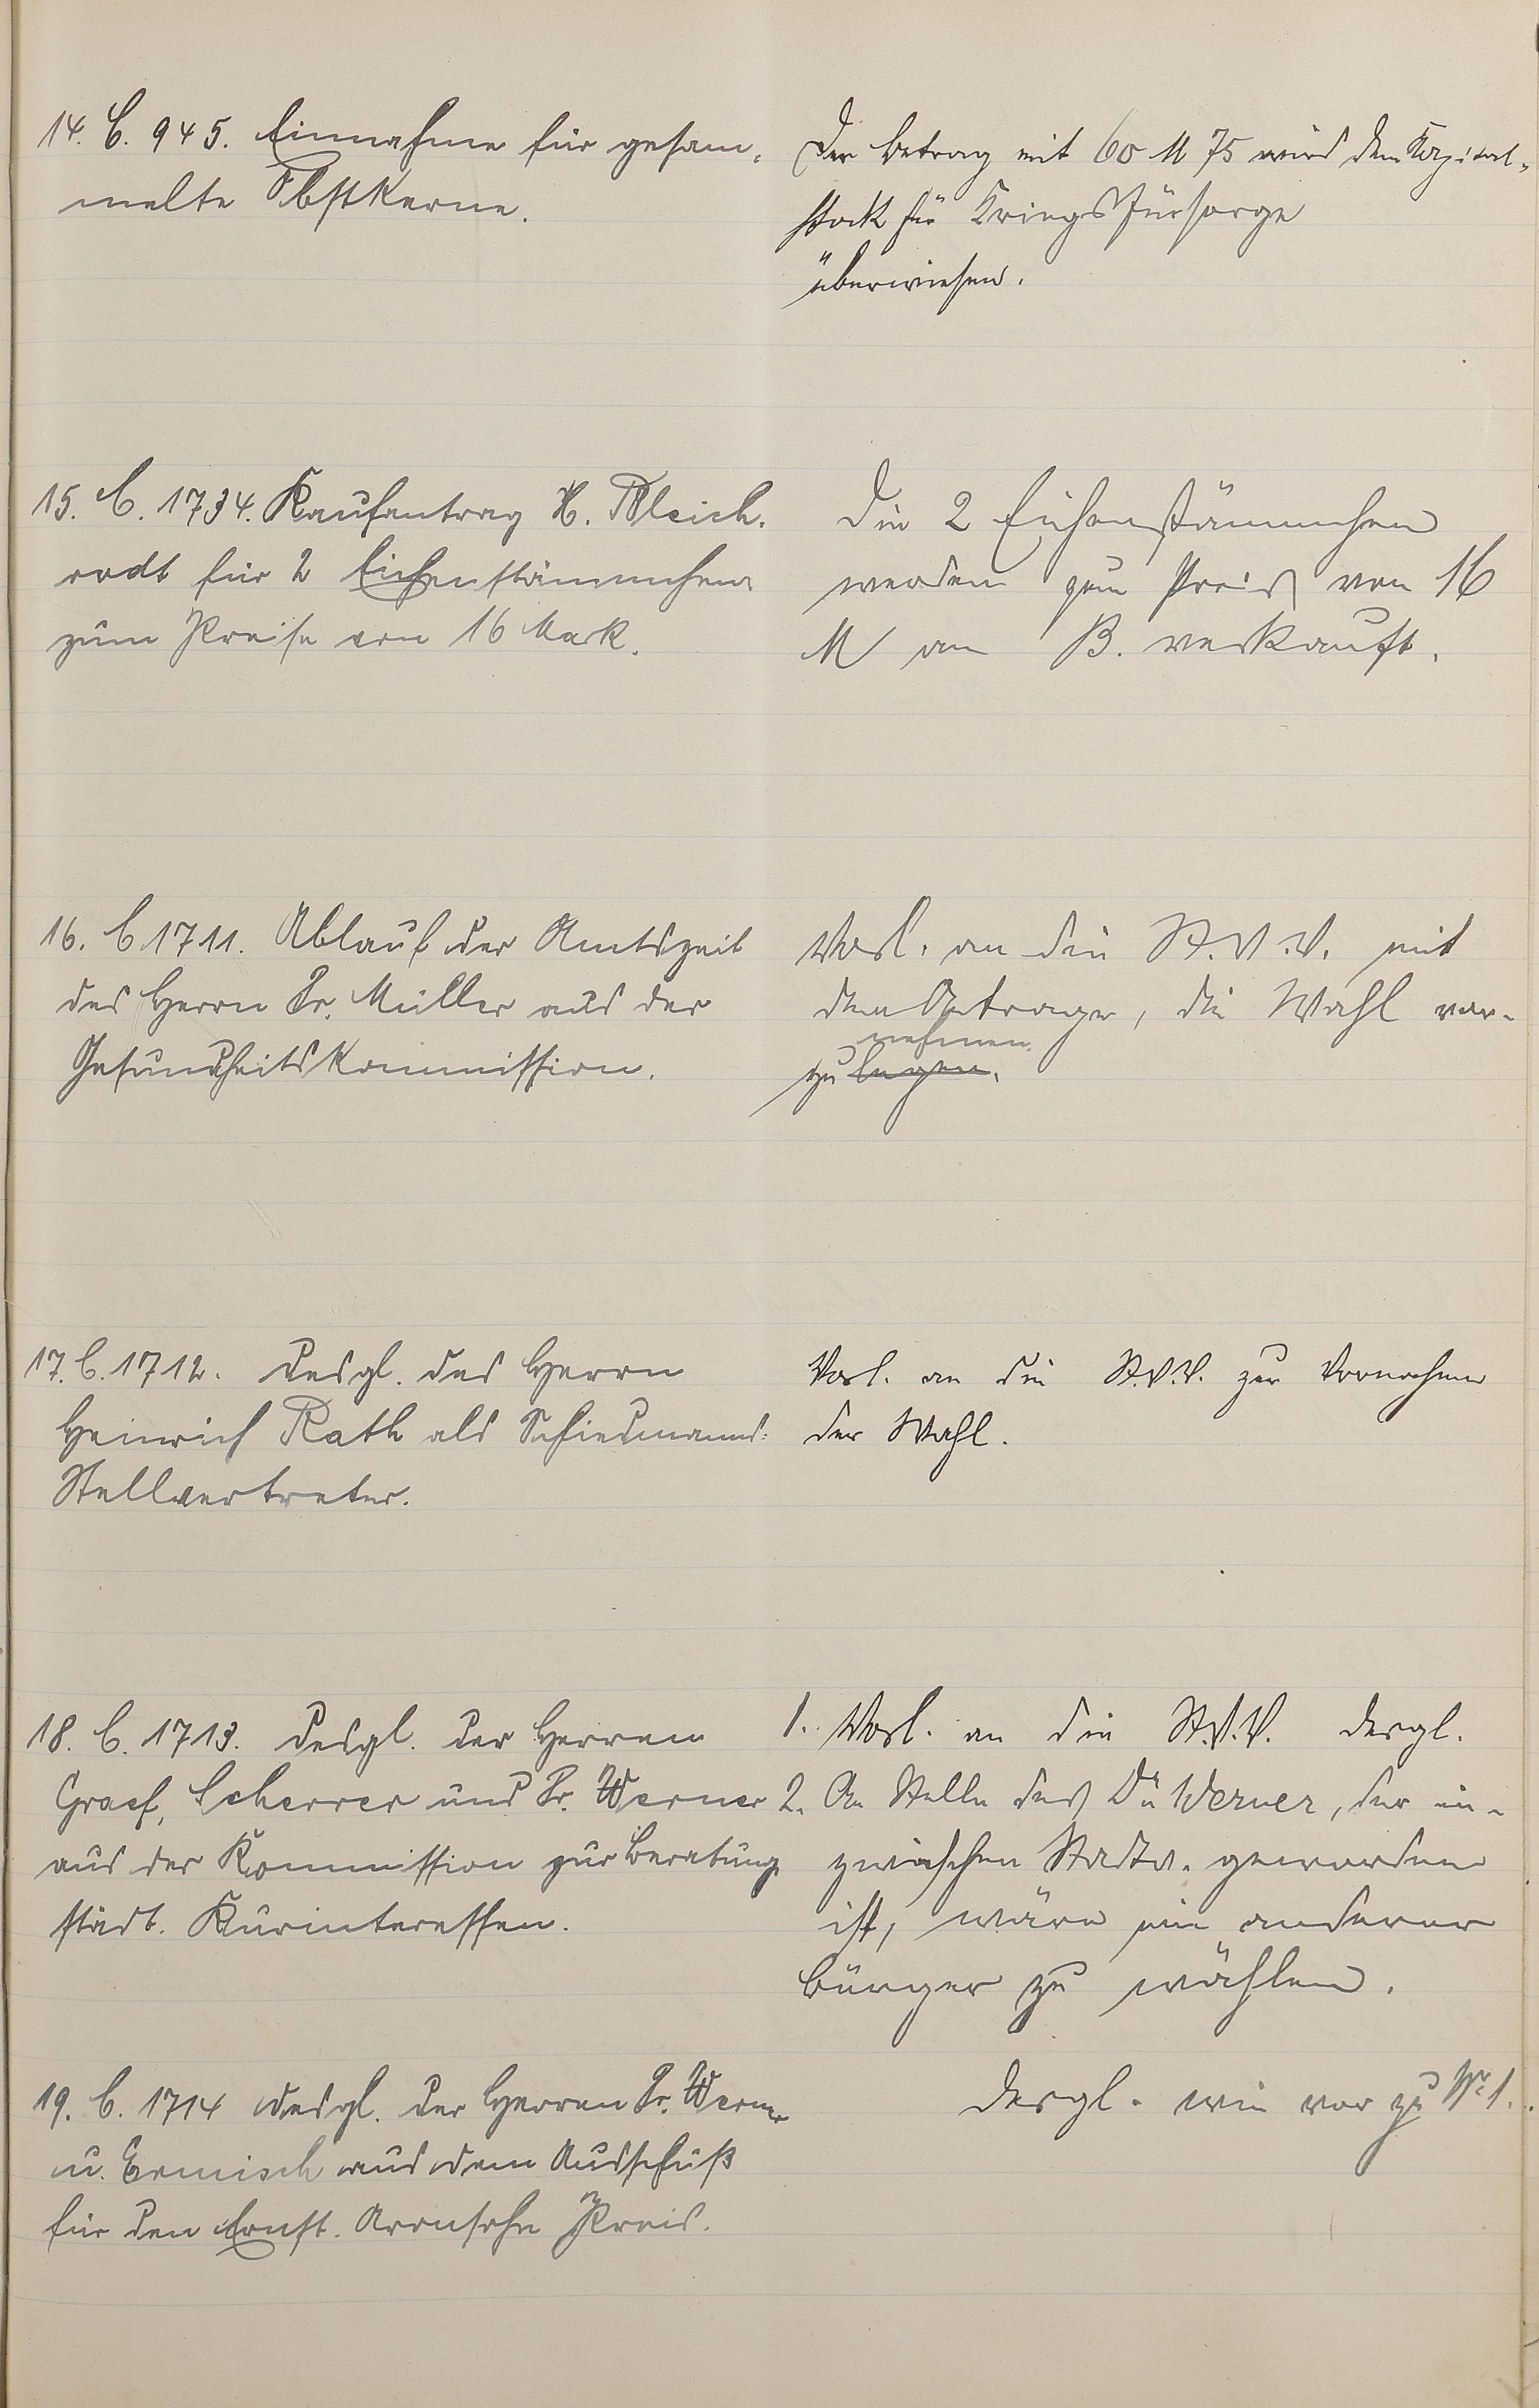 14. C. 945. Einnahme für gesam-
melte Obstkerne.
Der Betrag mit 60 M 75 wird dem Kapital-
stock für Kriegsfürsorge
überwiesen.
15. C. 1734. Kaufantrag H. Bleich-
rodt für 2 Eichenstämmchen
zum Preise von 16 Mark.
Die 2 Eichenstämmchen
werden zum Preis von 16
M an B. verkauft.
16. C 1711. Ablauf der Amtszeit
des Herrn Dr. Müller aus der
Gesundheitskommission.
Vorl. an die St.V.V. mit
dem Antrage, die Wahl vor-
nehmen.
zu legen.
17. C. 1712. Desgl. des Herrn
Heinrich Rath als Schiedsmanns-
Stellvertreter.
Vorl. an die St.V.V. zur Vornahme
der Wahl.
18. C. 1713. Desgl. der Herren
Graef, Scherrer und Dr. Werner
aus der Kommission zur Beratung
städt. Kurinteressen.
1. Vorl. an die St.V.V. desgl.
2. An Stelle des Dr. Werner, der in-
zwischen Stadtv. geworden
ist, wäre ein anderer
Bürger zu wählen.
19. C. 1714 desgl. der Herren Dr. Werner
u. Ermisch aus dem Ausschuß
für den Ernst. Aronsohn Preis.
desgl. wie vor zu Nr. 1.